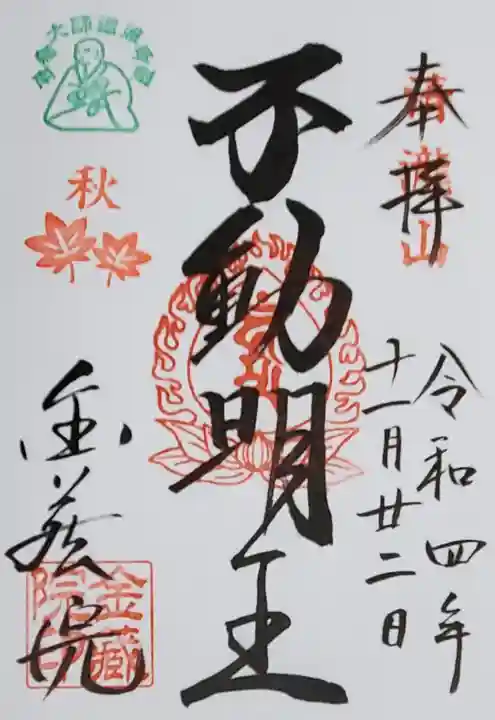 奉拝
令和四年
十一月廿二日
不動明王
秋
金蔵院
金蔵院印